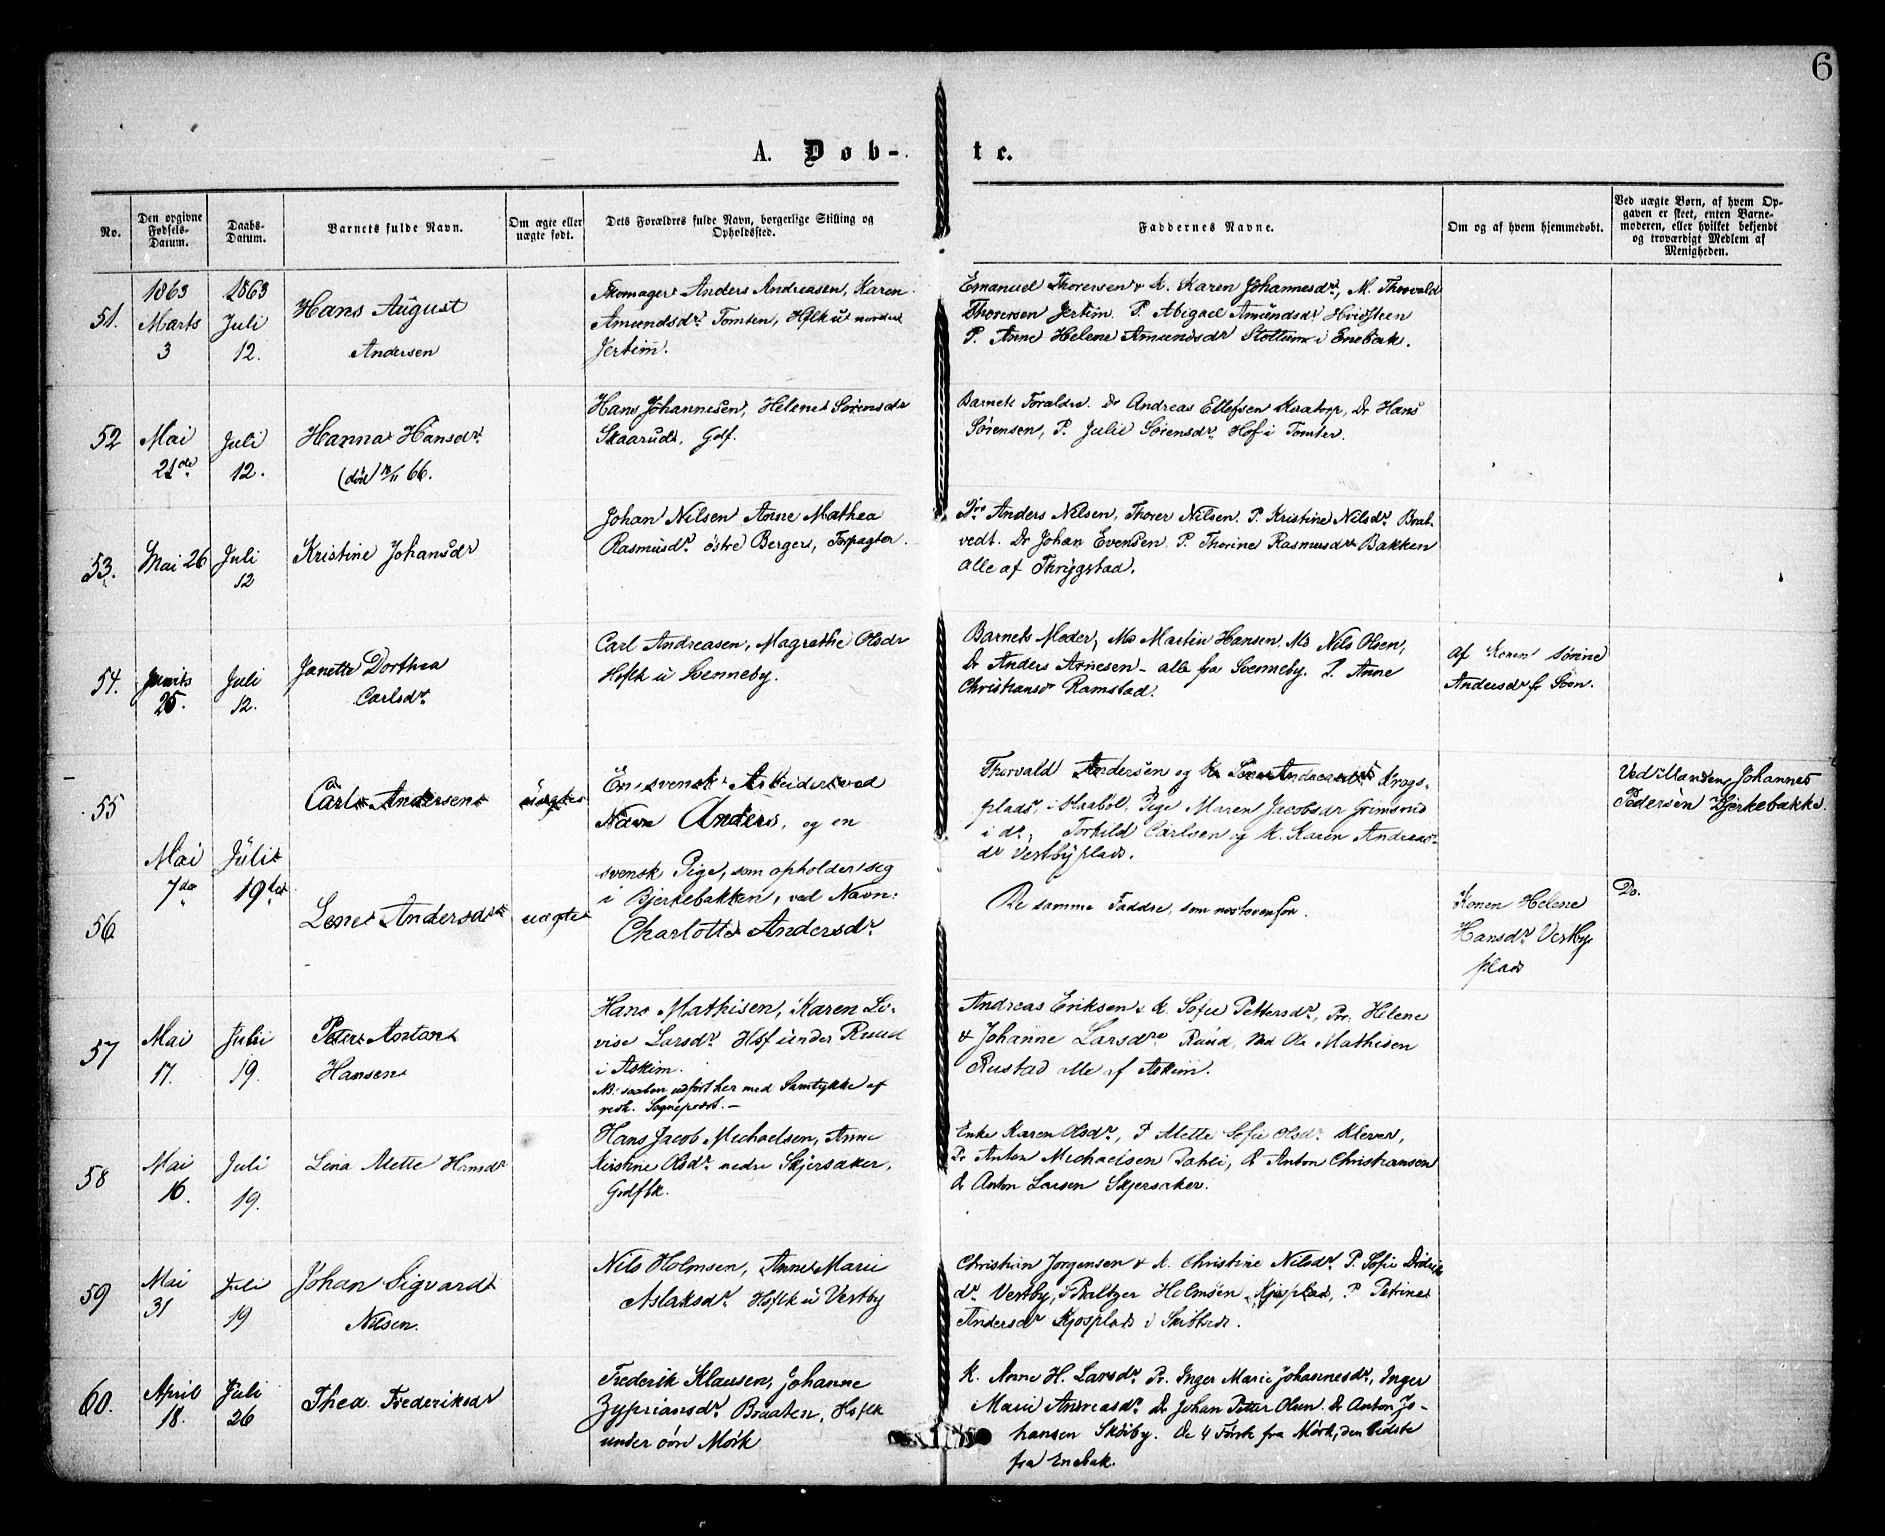 6
A. Døb-te.
No.
Den opgivne Fødsels-Datum.
Daabs-Datum.
Barnets fulde Navn.
Om ægte eller uægte født.
Dets Forældres fulde Navn, borgerlige Stilling og Opholdssted.
Faddernes Navne.
Om og af hvem hjemmedøbt.
Ved uægte Børn, af hvem Opgaven er skeet, enten Barnemoderen, eller hvilket bekjendt og troværdigt Medlem af Menigheden.
51.
1863
Marts
3
1863
Juli
12.
Hans August
Andersen
Skomager Anders Andreasen, Karen
Amundsdr Tomten, Hflk u nordre
Jertim.
Emanuel Thorersen & K. Karen Johannesdr, M. Thorvald
Thorersen Jertim. P. Abigael Amundsdr Hvidsteen
P. Anne Helene Amundsdr Stottum i Enebak.
52
Mai
21de
Juli
12.
Hanna Hansdr.
(død 18/11 66.
Hans Johannesen, Helene Sørensdr
Skaarud, Gdf.
Barnets Foraldre. Dr Andreas Ellefsen Kratyr, Dr Hans
Sørensen, P. Julie Sørensdr. Hof i Tomter.
53.
Mai 26
Juli
12
Kristine Johansdr
Johan Nilsen Anne Mathea
Rasmusdr. østre Berger, Forpagter.
Dre Anders Nilsen, Thorer Nilsen. P. Kristine Nilsdr. Brat-
vedt. Dr Johan Evensen. P. Thorine Rasmusdr Bakken
alle af Thrygstad.
54.
25.
Juli
12.
Janette Dorthea
Carlsdr.
Carl Andreasen, Magrathe Olsdr
Hflk u Svenneby.
Barnets Moder, Md Martin Hansen, Md Nils Olsen,
Dr Anders Arnesen - alle fra Svenneby. P. Anne
Christiansdr Ramstad.
af Konen Sørine
Andersdr fr Soon.
55
Mai
7de
Juli
19de
Carl Andersen
uægte
En svensk Arbeider ved
Navn Anders, og en
svensk Pige, som opholder seg
i Bjerkebakken, ved Navn:
Charlotte Andersdr.
Thorvald Andersen og K. Krogs-
plads, i Haabøl. Pige Maren Jacobsdr Grimsrud
i do, Torkild Carlsen og K. Karen Andreas-
dr Vestbyplads.
Ved Manden Johannes
Pedersen Bjerkebakke.
56
Lene Andersdr
uægte
De samme Faddre, som næst ovenfor.
Konen Helene
Hansdr. Vestby
plads
Do.
57
Mai
17.
Juli
19.
Peter Anton
Hansen
Hans Mathisen, Karen Lo-
vise Larsdr. Hsf under Ruud
i Askim.
NB. daaben udført her med Samtykke af
vedk. Sognepræst. -
Andreas Eriksen & K. Sofie Pettersdr, Pr. Helene
& Johanne Larsdre Ruud, Md Ole Mathisen
Rustad alle af Askim.
58
Mai
16.
Juli
19.
Lina Mette Hansdr
Hans Jacob Michaelsen, Anne
Kirstine Olsdr. nedre Skjersaker,
Gdflk.
Enke Karen Olsdr, P. Mette Sofie Olsdr. Kleven,
Dr Anton Michaelsen Dahli, Dr Anton Christiansen
Dr Anton Larsen Skjersaker.
59
Mai
31
Juli
19
Johan Sigvard
Nilsen.
Nils Holmsen, Anne Marie
Aslaksdr. Hsflk u Vestby
Christian Jorgensen & K. Christine Nilsdr. P. Sofie Didrik
dr. Vestby, Baltzer Holmsen Kjosplads, P Petrine
Andersdr Kjosplads i Skibtvedt.
60.
April
18.
Juli
26
Thea Frederiksdr
Frederik Klausen, Johanne
Zypriansdr. Braaten, Hsflk
under øvre Mørk
K. Anne H. Larsdr. Pr. Inger Marie Johannesdr, Inger
Marie Andreasdr. Dr Johan Petter Olsen. Dr Anton Jo-
hansen Skøiby. De 4 første fra Mørk, den Sidste
fra Enebak.